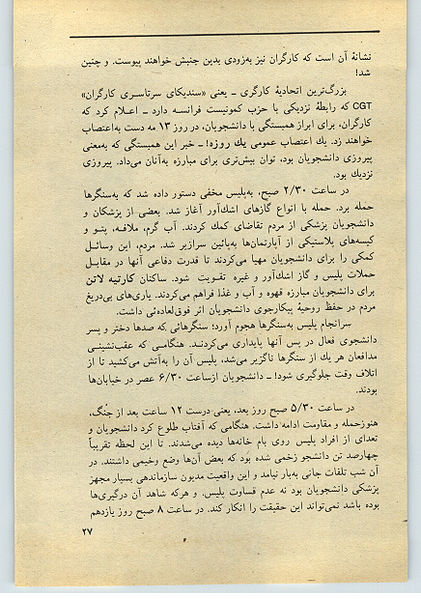 نشانهٔ آن است که کارگران نیز به‌زودی بدین جنبش خواهند پیوست. و چنین
شد!
بزرگ‌ترین اتحادیهٔ کارگری ـ یعنی «سندیکای سرتاسری کارگران»
CGT که رابطهٔ نزدیکی با حزب کمونیست فرانسه دارد ـ اعلام کرد که
کارگران، برای ابراز همبستگی با دانشجویان، در روز ۱۳ مه دست به‌اعتصاب
خواهند زد. یك اعتصاب عمومی یك روزه! ـ خبر این همبستگی که به‌معنی
پیروزی دانشجویان بود، توان بیش‌تری برای مبارزه به‌آنان می‌داد. پیروزی
نزدیك بود.
در ساعت ۲/۳۰ صبح، به‌پلیس مخفی دستور داده شد که به‌سنگرها
حمله برد. حمله با انواع گازهای اشك‌آور آغاز شد. بعضی از پزشکان و
دانشجویان پزشکی از مردم تقاضای کمك کردند. آب گرم، ملافه، پتو و
کیسه‌های پلاستیکی از آپارتمان‌ها به‌پائین سرازیر شد. مردم، این وسائل
کمکی را برای دانشجویان مهیا می‌کردند تا قدرت دفاعی آنها در مقابل
حملات پلیس و گاز اشك‌آور و غیره تقویت شود. ساکنان کارتیه لاتن
برای دانشجویان مبارزه قهوه و آب و غذا فراهم می‌کردند. یاری‌های بی‌دریغ
مردم در حفظ روحیهٔ پیکارجوی دانشجویان اثر فوق‌العاده‌ئی داشت.
سرانجام پلیس به‌سنگرها هجوم آورد؛ سنگرهائی که صدها دختر و پسر
دانشجوی فعال در پس آنها پایداری می‌کردند. هنگامی که عقب‌نشینی
مدافعان هر یك از سنگرها ناگزیر می‌شد، پلیس آن را به‌آتش می‌کشید تا از
اتلاف وقت جلوگیری شود! ـ دانشجویان ازساعت ۶/۳۰ عصر در خیابان‌ها
بودند.
در ساعت ۵/۳۰ صبح روز بعد، یعنی درست ۱۲ ساعت بعد از جنگ،
هنوزحمله و مقاومت ادامه‌داشت. هنگامی که آفتاب طلوع کرد دانشجویان و
تعدادی از افراد پلیس روی بام خانه‌ها دیده می‌شدند. تا این لحظه تقریباً
چهارصد تن دانشجو زخمی شده بود که بعض آن‌ها وضع وخیمی داشتند. در
آن شب تلفات جانی به‌بار نیامد و این واقعیت مدیون سازماندهی بسیار مجهز
پزشکی دانشجویان بود نه عدم قساوت پلیس. و هرکه شاهد آن درگیری‌ها
بوده باشد نمی‌تواند این حقیقت را انکار کند. در ساعت ۸ صبح روز یازدهم
۲۷